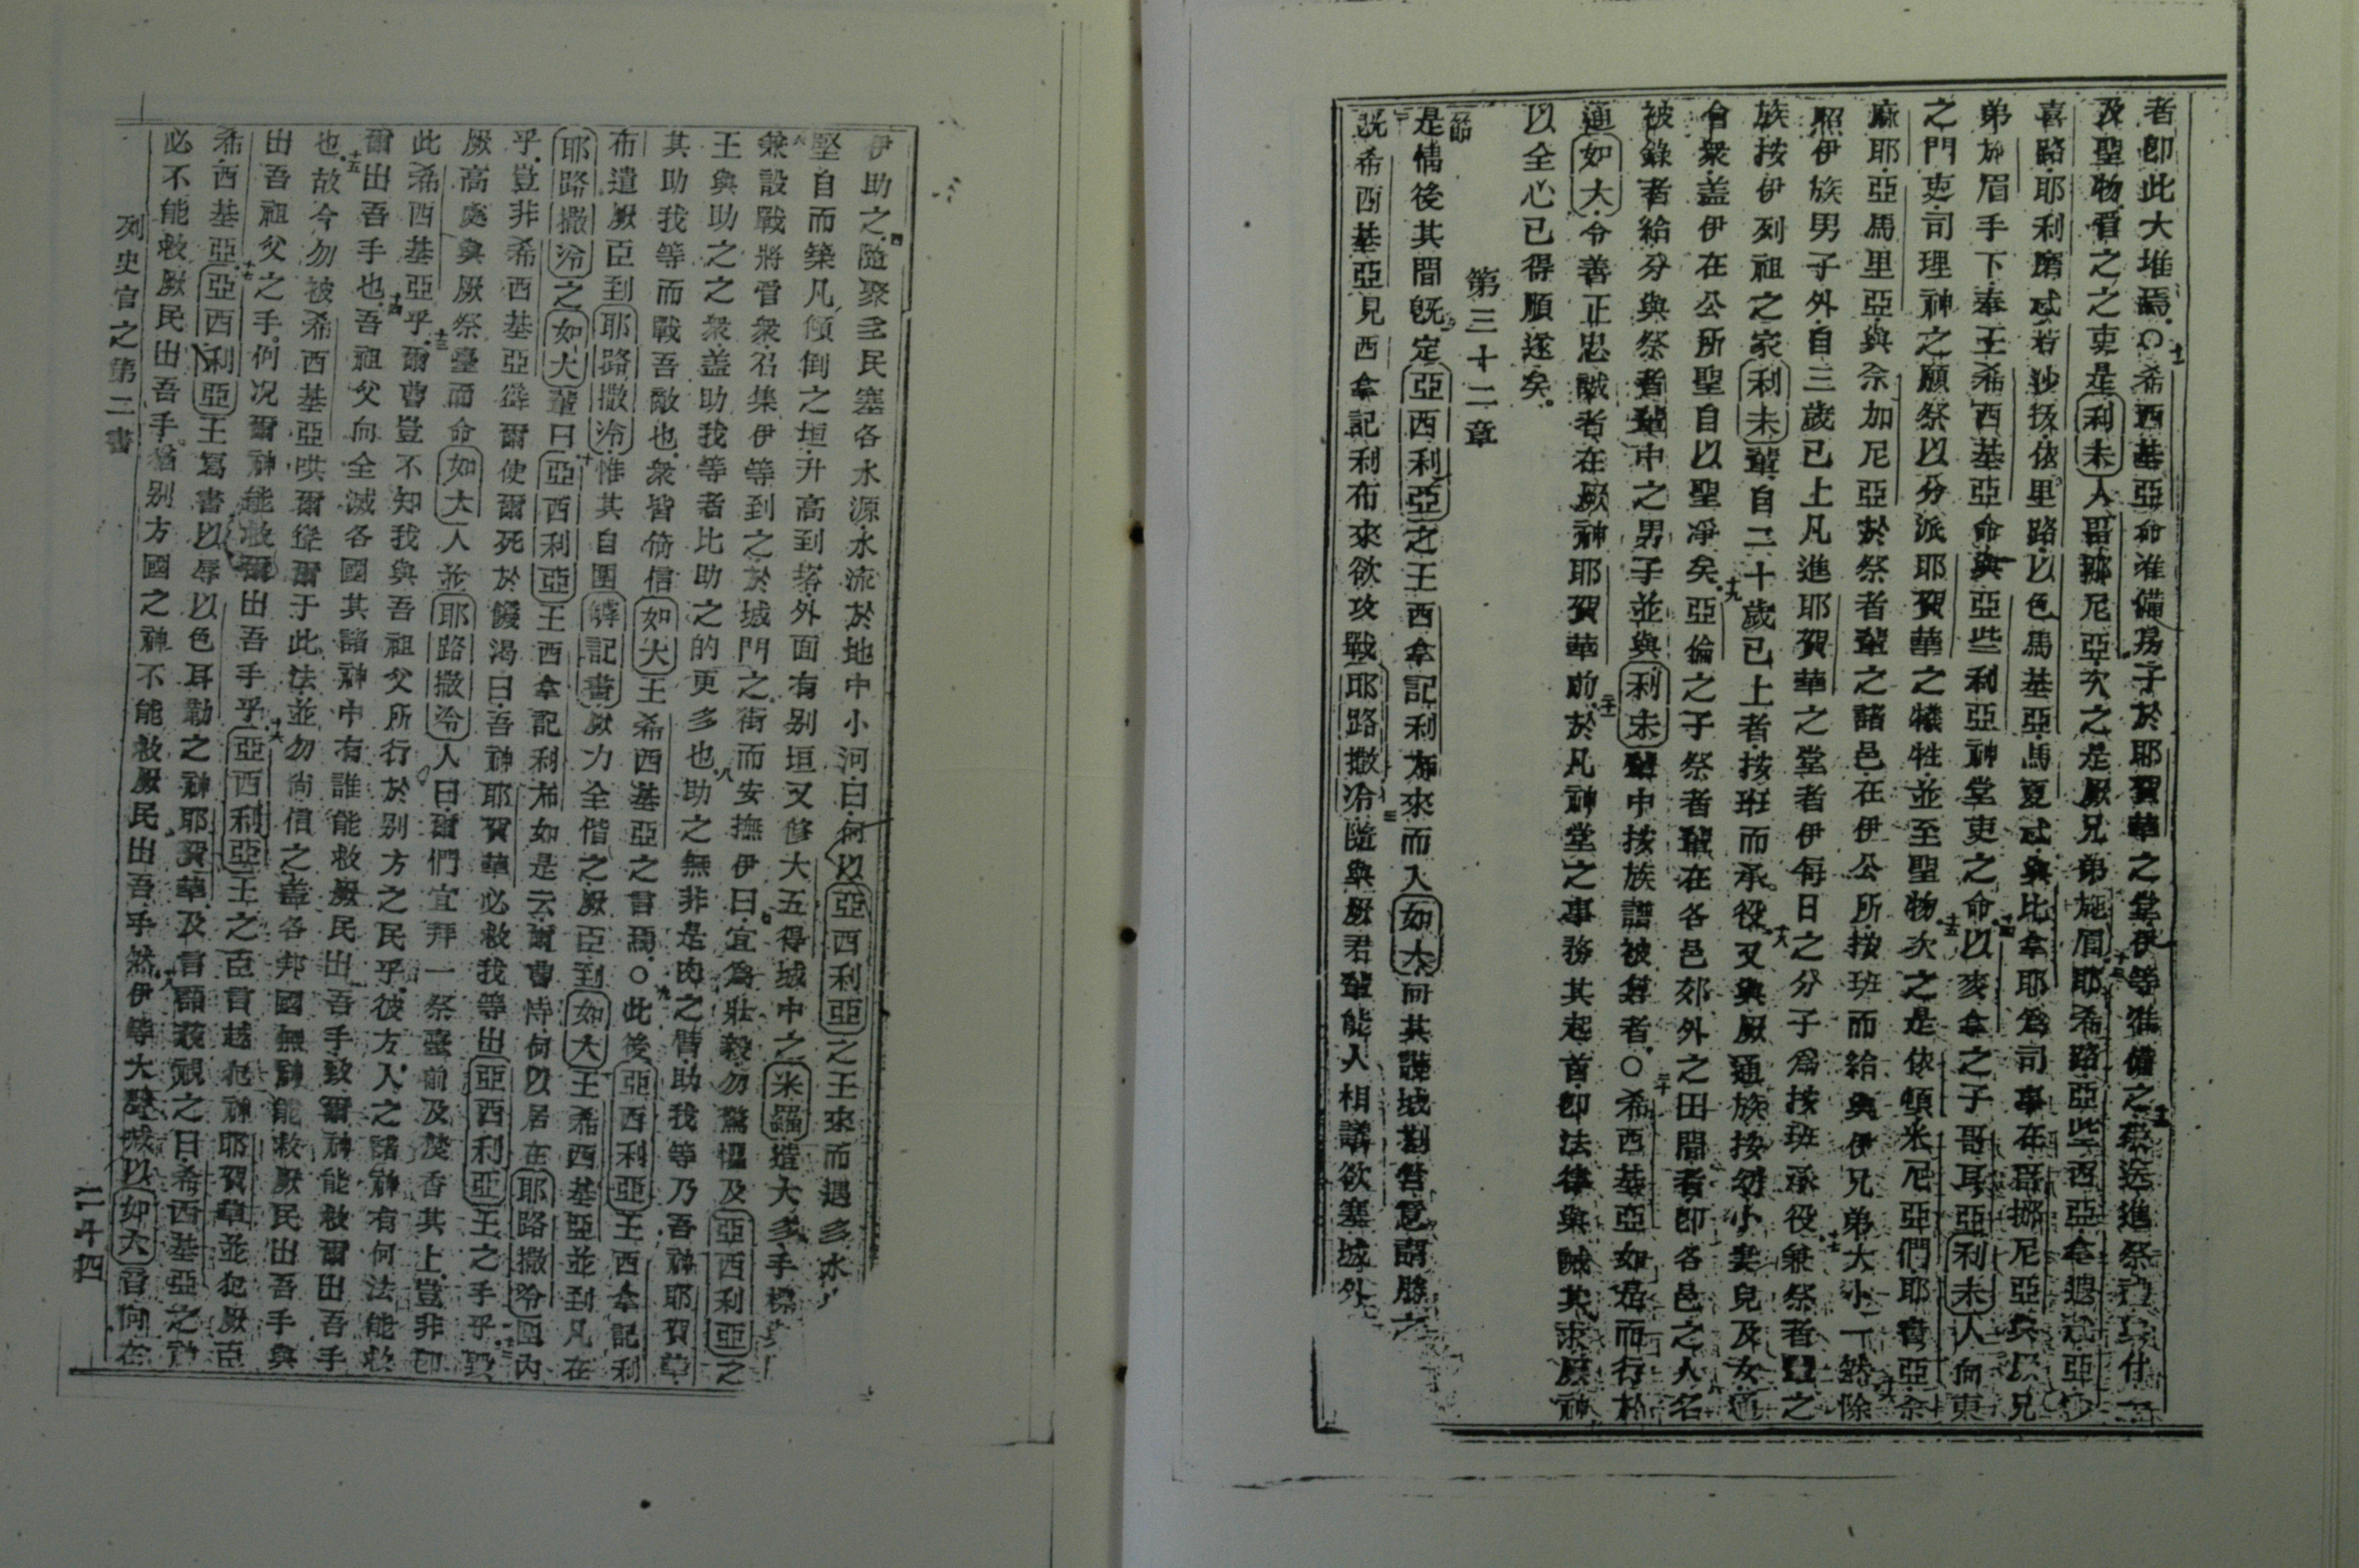 者卽此大堆焉○十一希西基亞命准備房子於耶賀華之堂伊等准備之十二祭送進祭
及聖物看之之吏是利未人哥挪尼亞次之是厥兄弟施眉十三耶希路亞些西亞拿
喜路耶利磨忒若抄扳依里路以色馬基亞馬夏忒與比拿耶爲司事在哥挪尼亞與以兄
弟施眉手下奉王希西基亞命與亞些利亞神堂吏之命十四以麥拿之子哥耳亞利未人向東
之門吏司理神之願祭以分派耶賀華之犧牲並至聖物十五次之是依頓米尼亞們耶書亞
麻耶亞馬里亞與示加尼亞於祭者輩之諸邑在伊公所按班而給與伊兄弟大小一然十六除
照伊族男子外自三歲已上凡進耶賀華之堂者伊每日之分子爲按班承役十七兼祭者輩之
族按伊列祖之家利未輩自二十歲已上者按班而承役十八又與厥通族按幼小妻兒及女通
會衆盖伊在公所聖自以聖凈矣十九亞倫之子祭者輩在各邑郊外之田間者卽各邑之人名
被錄者給分與祭者輩中之男子並與利未輩中按族譜被算者○二十希西基亞如是而行於
通如大令善正忠誠者在厥神耶賀華前二十一於凡神堂之事務其起首卽法律與誡其求厥神
以全心已得順遂矣
第三十二章
節一是情後其間旣定亞西利亞之王西拿記利布來而入如大向其護城劄營意謂勝之
二旣希西基亞見西拿記利布來欲攻戰耶路撒冷三隨與厥君輩能人相議欲塞城外
伊助之四隨聚全民塞各水源水流於地中小河曰何以亞西利亞之王來而遇多水
堅自而築凡傾倒之垣升高到塔外面有别垣又修大五得城中之米羅造大多手標
六兼設戰將督衆召集伊等到之於城門之街而安撫伊曰七宜爲壯毅勿驚惶及亞西利亞之
王與助之之衆盖助我等者比助之的更多也八助之無非是肉之臂助我等乃吾神耶賀華
其助我等而戰吾敵也衆皆倚信如大王希西基亞之言焉○九此後亞西利亞王西拿記利
布遣厥臣到耶路撒冷惟其自圍𡀔記書厥力全偕之厥臣到如大王希西基亞並到凡在
耶路撒冷之如大輩曰十亞西利亞王西拿記利布如是云爾曹恃何以居在耶路撒冷圍內
乎十一豈非希西基亞聳爾使爾死於饑渴曰吾神耶賀華必救我等出亞西利亞王之手乎十二毁
厥高處與厥祭臺而命如大人並耶路撒冷人曰爾們宜拜一祭臺前及焚香其上豈非卽
此希西基亞乎十三爾曹豈不知我與吾祖父所行於别方之民乎彼方人之諸神有何法能救
爾出吾手也十四吾祖父向全滅各國其諸神中有誰能救厥民出吾手致爾神能救爾出吾手
也十五故今勿被希西基亞哄爾聳爾于此法並勿尚信之盖各邦國無神能救厥民出吾手與
出吾祖父之手何况爾神能救爾出吾手乎十六亞西利亞王之臣言越犯神耶賀華並犯厥臣
希西基亞十七亞西利亞王寫書以辱以色耳勒之神耶賀華及言藐視之曰希西基亞之神
必不能救厥民出吾手猶别方國之神不能救厥民出吾手然十八伊等大聲喊以如大音向在
列史官之第二書
二十四